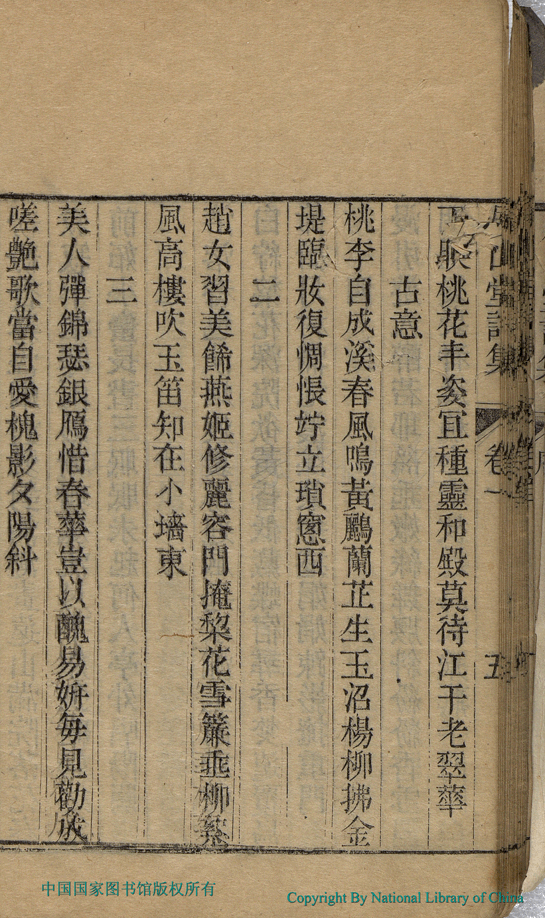 堂詩集 卷一 五
聯桃花丰姿宜種靈和殿莫待江干老翠華
古意
桃李自成溪春風鳴黃鸝蘭芷生玉沼楊柳拂金
堤臨妝復惆悵竚立瑣窻西
二
趙女習美餙燕姬修麗容門掩梨花雪簾垂柳絮
風高樓吹玉笛知在小墻東
三
美人彈錦瑟銀鴈惜春華豈以醜易妍每見勸成
嗟艷歌當自愛槐影夕陽斜
中国国家图书馆版权所有
Copyright By National Library of China